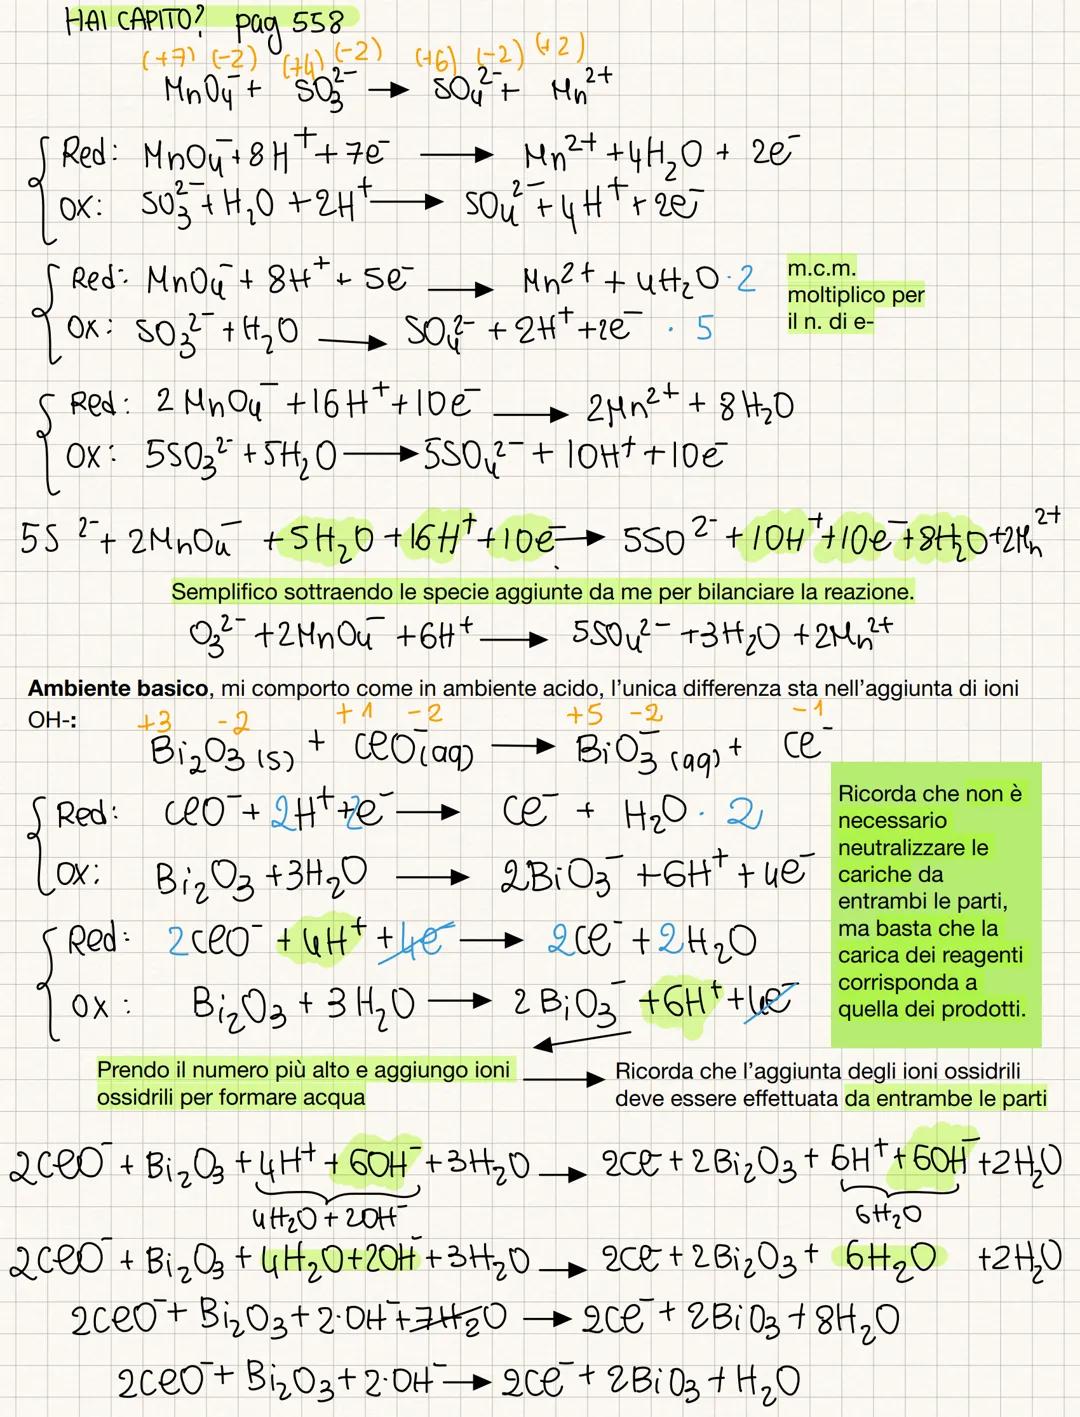 HAI CAPITO? pag 558
(+7) (-2) (+4) (-2) (+6) (-2) (+2)
MnO₄⁻ + SO₃²⁻ → SO₄²⁻ + Mn²⁺
Red: MnO₄⁻ + 8H⁺ + 7e⁻ → Mn²⁺ + 4H₂O + 2e⁻
OX: SO₃²⁻ + H₂O + 2H⁺ → SO₄²⁻ + 4H⁺ + 2e⁻
Red: MnO₄⁻ + 8H⁺ + 5e⁻ → Mn²⁺ + 4H₂O · 2
OX: SO₃²⁻ + H₂O → SO₄²⁻ + 2H⁺ + 2e⁻ · 5
m.c.m.
moltiplico per
il n. di e-
Red: 2MnO₄⁻ + 16H⁺ + 10e⁻ → 2Mn²⁺ + 8H₂O
OX: 5SO₃²⁻ + 5H₂O → 5SO₄²⁻ + 10H⁺ + 10e⁻
5S²⁻ + 2MnO₄⁻ + 5H₂O + 16H⁺ + 10e⁻ → 5SO²⁻ + 10H⁺ + 10e⁻ + 8H₂O + 2Mn²⁺
Semplifico sottraendo le specie aggiunte da me per bilanciare la reazione.
O₃²⁻ + 2MnO₄⁻ + 6H⁺ → 5SO₄²⁻ + 3H₂O + 2Mn²⁺
Ambiente basico, mi comporto come in ambiente acido, l'unica differenza sta nell'aggiunta di ioni
OH-:
+3 -2 +1 -2 +5 -2 -1
Bi₂O₃ (s) + ceO⁻(aq) → BiO₃⁻ (aq) + ce⁻
Red: ceO⁻ + 2H⁺ + 2e⁻ → ce⁻ + H₂O · 2
OX: Bi₂O₃ + 3H₂O → 2BiO₃⁻ + 6H⁺ + 4e⁻
Red: 2ceO⁻ + 4H⁺ + 4e⁻ → 2ce⁻ + 2H₂O
OX: Bi₂O₃ + 3H₂O → 2BiO₃⁻ + 6H⁺ + 4e⁻
Ricorda che non è
necessario
neutralizzare le
cariche da
entrambi le parti,
ma basta che la
carica dei reagenti
corrisponda a
quella dei prodotti.
Prendo il numero più alto e aggiungo ioni
ossidrili per formare acqua
Ricorda che l'aggiunta degli ioni ossidrili
deve essere effettuata da entrambe le parti
2ceO⁻ + Bi₂O₃ + 4H⁺ + 6OH⁻ + 3H₂O → 2ce⁻ + 2Bi₂O₃ + 6H⁺ + 6OH⁻ + 2H₂O
4H₂O + 2OH⁻ 6H₂O
2ceO⁻ + Bi₂O₃ + 4H₂O + 2OH⁻ + 3H₂O → 2ce⁻ + 2Bi₂O₃ + 6H₂O + 2H₂O
2ceO⁻ + Bi₂O₃ + 2·OH⁻ + 7H₂O → 2ce⁻ + 2BiO₃ + 8H₂O
2ceO⁻ + Bi₂O₃ + 2·OH⁻ → 2ce⁻ + 2BiO₃ + H₂O